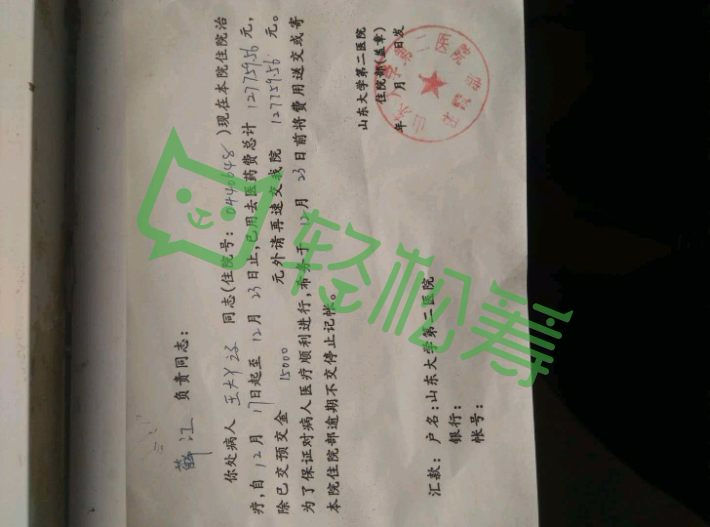 负责同志:
你处病人 同志(住院号: 0440648)现在本院住院治
疗,自12月17日起至12月23日止,已用去医药费总计 元,
除已交预交金 15000 元外请再速交我院 元。
为了保证对病人医疗顺利进行,希务于12月23日前将费用送交或寄
本院住院部逾期不交停止记帐。
山东大学第二医院
住院部(盖章)
年 月 日发
汇款:户名:山东大学第二医院
银行:
帐号:
轻松筹